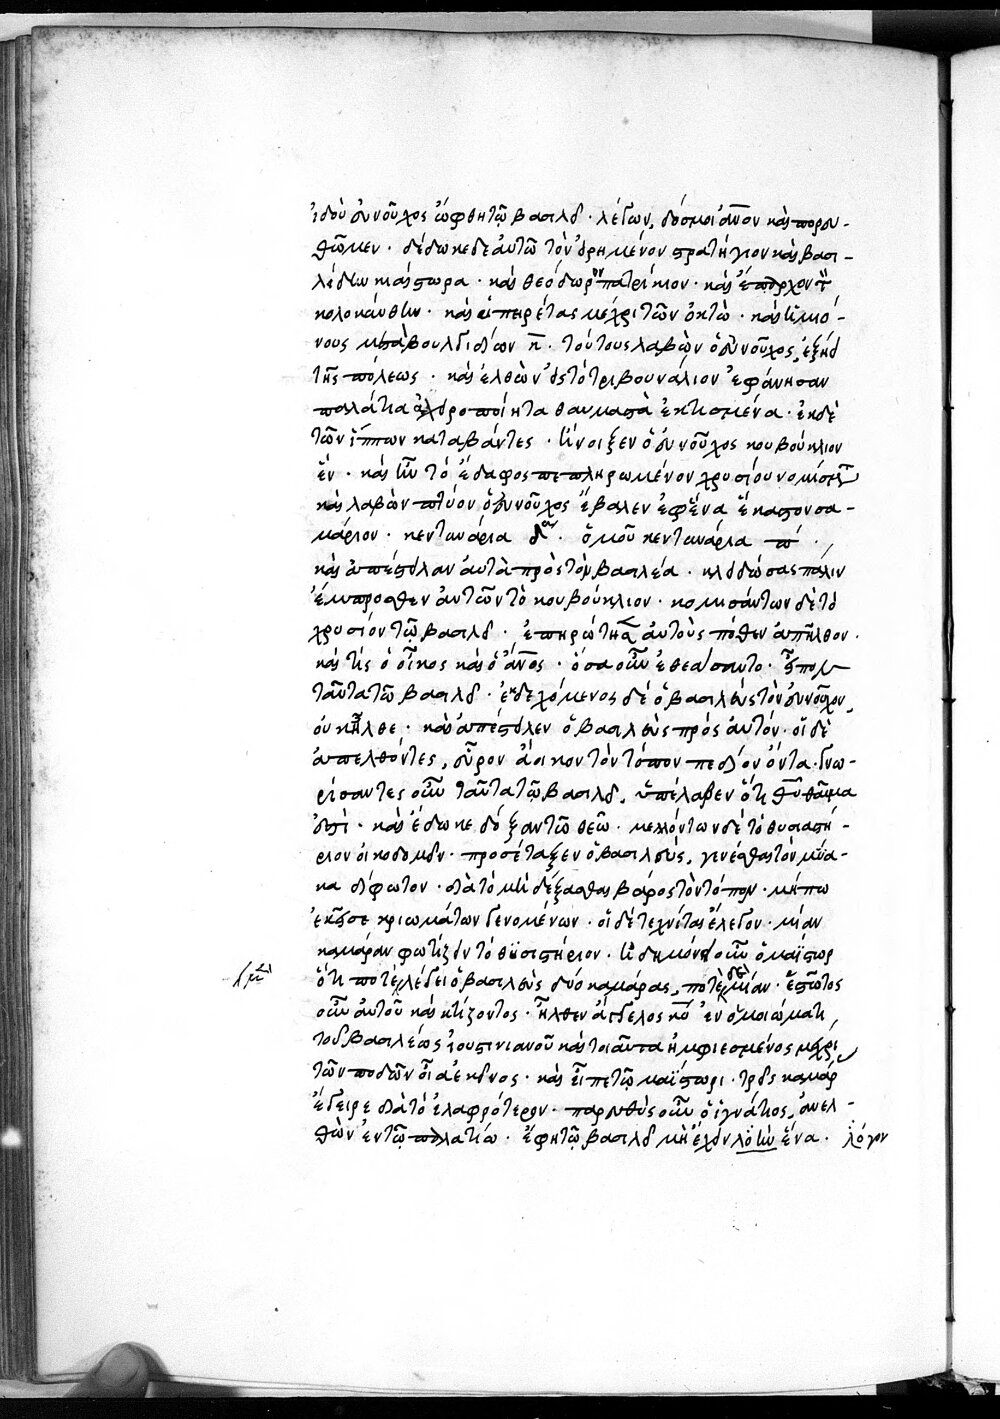 ἰδοὺ εὐνοῦχος ὤφθη τῶ βασιλεῖ · λέγων, δός μοι ἀνον καὶ πορευ-
θῶμεν · δέδωκε δὲ αὐτῶ τὸν εἰρημένον στρατήγιον καὶ βασι-
λείδην κιαίστωρα · καὶ θεόδωρον πατρίκιον · καὶ ἔπαρχον τ
κολοκύνθην · καὶ ὑπηρέτας μέχρι τῶν ὀκτὼ · καὶ ἡμιό-
νους μετὰ βουλγιδίων η · τούτους λαβὼν ὁ εὐνοῦχος, ἐξῄει
τῆς πόλεως · καὶ ἐλθὼν εἰς τὸ τριβουνάλιον ἐφάνησαν
παλάτια ἀχειροποίητα θαυμαστὰ ἐκτισμένα · ἐκ δὲ
τῶν ἵππων καταβάντες · ἤνοιξεν ὁ εὐνοῦχος κουβούκλιον
ἕν · καὶ ἦν τὸ ἔδαφος πεπληρωμένον χρυσίου νομίσματ
καὶ λαβὼν πτύον ὁ εὐνοῦχος ἔβαλεν ἐφ ἕνα ἕκαστον σα-
μάριον · κεντηνάρια δ · ὁμοῦ κεντηνάρια π ·
καὶ ἀπέστειλεν αὐτὰ πρὸς τὸν βασιλέα · κλειδώσας πάλιν
ἔμπροσθεν αὐτῶν τὸ κουβούκλιον · κομισάντων δὲ τὸ
χρυσίον τῶ βασιλεῖ · ἐπηρώτησεν αὐτοὺς πόθεν ἀπῆλθον ·
καὶ τίς ὁ οἶκος καὶ ὁ ἀνος · ὅσα οὖν ἐθεάσαντο · εἶπον
ταῦτα τῶ βασιλεῖ · ἐκδεχόμενος δὲ ὁ βασιλεὺς τὸν εὐνοῦχον,
οὐκ ἦλθε · καὶ ἀπέστειλεν ὁ βασιλεὺς πρὸς αὐτόν · οἱ δὲ
ἀπελθόντες, εὗρον ἄοικον τὸν τόπον πεδίον ὄντα · γνω-
ρίσαντες οὖν ταῦτα τῶ βασιλεῖ, ὑπέλαβεν ὅτι θυ θαῦμα
ἐστὶ · καὶ ἔδωκε δόξαν τῶ θεῶ · μελλόντων δὲ τὸ θυσιαστή-
ριον οἰκοδομεῖν · προσέταξεν ὁ βασιλεὺς, γενέσθαι τὸν μύα-
κα δίφωτον · διὰ τὸ μὴ δέξασθαι βάρος τὸν τόπον · μήπω
ἐκεῖσε κριωμάτων γενομένων · οἱ δὲ τεχνίται ἔλεγον · μίαν
καμάραν φωτίζειν τὸ θυσιαστήριον · ἠδημόνει οὖν ὁ μαΐστωρ
ὅτι ποτὲ λέγει ὁ βασιλεὺς δύο καμάρας, ποτὲ δὲ μίαν · ἑστῶτος
οὖν αὐτοῦ καὶ κτίζοντος · ἦλθεν ἄγγελος κυ ἐν ὁμοιώματι
τοῦ βασιλέως ἰουστινιανοῦ καὶ τοιαῦτα ἠμφιεσμένος μέχρι
τῶν ποδῶν οἷα ἐκεῖνος · καὶ εἶπε τῶ μαΐστωρι · τρεῖς καμάρ
ἔγειρε διὰ τὸ ἐλαφρότερον · παρευθὺς οὖν ὁ ἰγνάτιος, ἀνελ-
θὼν ἐν τῶ παλατίω · ἔφη τῶ βασιλεῖ μὴ ἔχειν λόγον ἕνα · λόγον